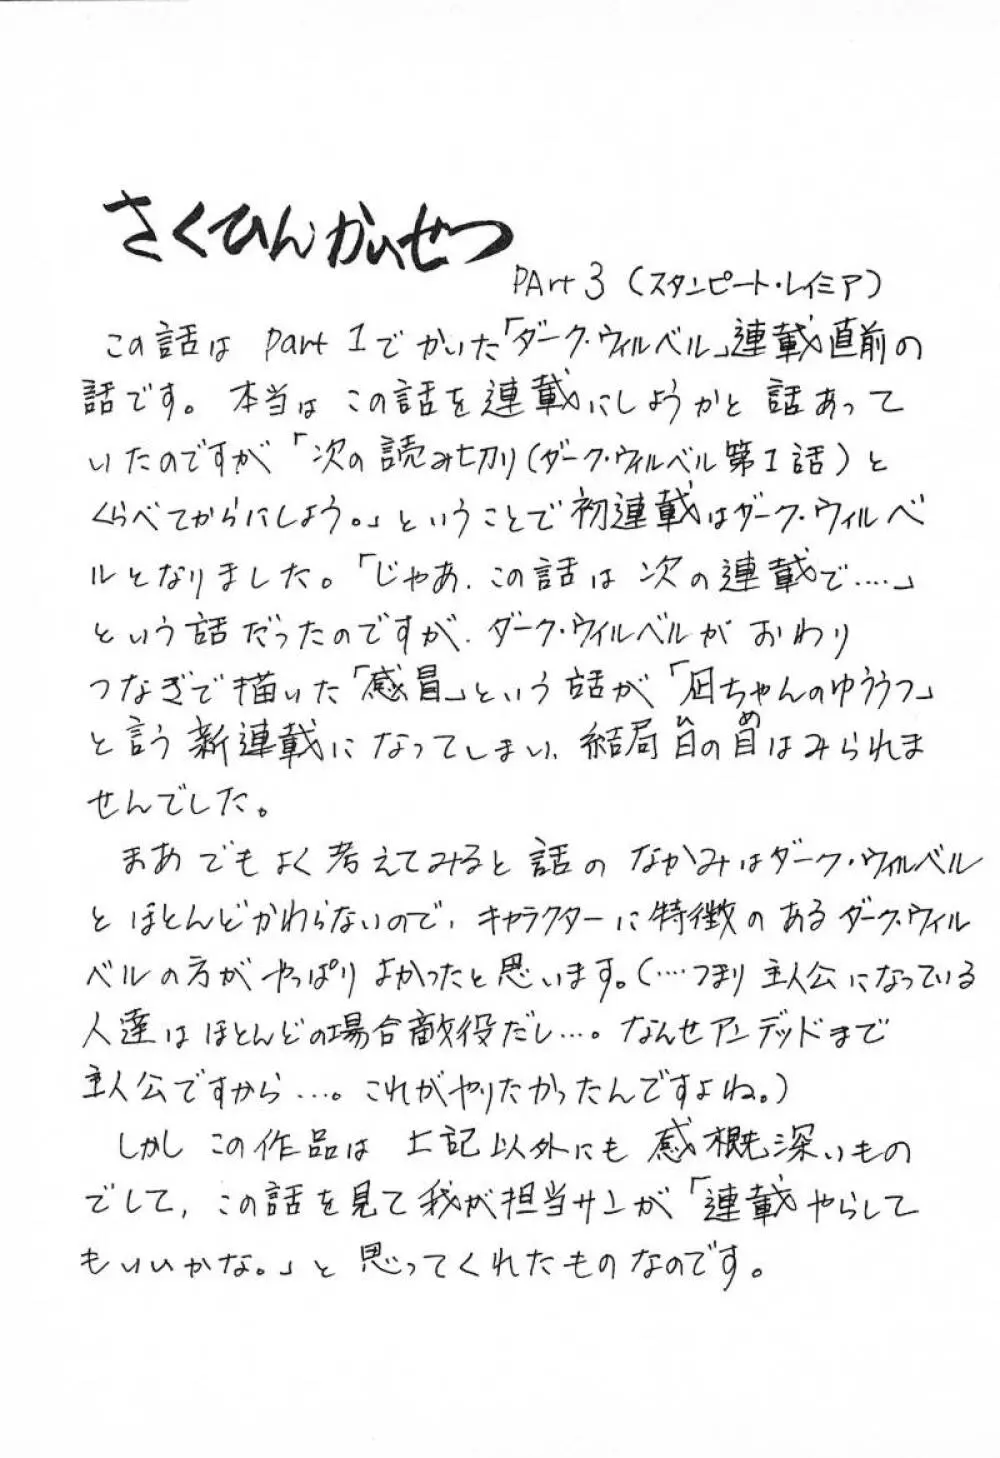 さくひんかいせつ
PArt 3 (スタンピート・レイミア)
この話は part 1でかいた「ダーク・ウィルベル」連載直前の
話です。本当はこの話を連載にしようかと話あって
いたのですが「次の読み切り(ダーク・ウィルベル第1話)と
くらべてからにしよう。」ということで初連載はダーク・ウィルベ
ルとなりました。「じゃあ、この話は次の連載で‥‥」
という話だったのですが、ダーク・ウィルベルがおわり
つなぎで描いた「感冒」という話が「凪ちゃんのゆううつ」
と言う新連載になってしまい、結局日の目はみられま
ひ め
せんでした。
まあでもよく考えてみると話のなかみはダーク・ウィルベル
とほとんどかわらないので、キャラクターに特徴のあるダーク・ウィル
ベルの方がやっぱりよかったと思います。(‥‥つまり主人公になっている
人達はほとんどの場合敵役だし‥‥。なんせアンデッドまで
主人公ですから‥‥。これがやりたかったんですよね。)
しかしこの作品は上記以外にも感慨深いもの
でして、この話を見て我が担当サンが「連載やらして
もいいかな。」と思ってくれたものなのです。